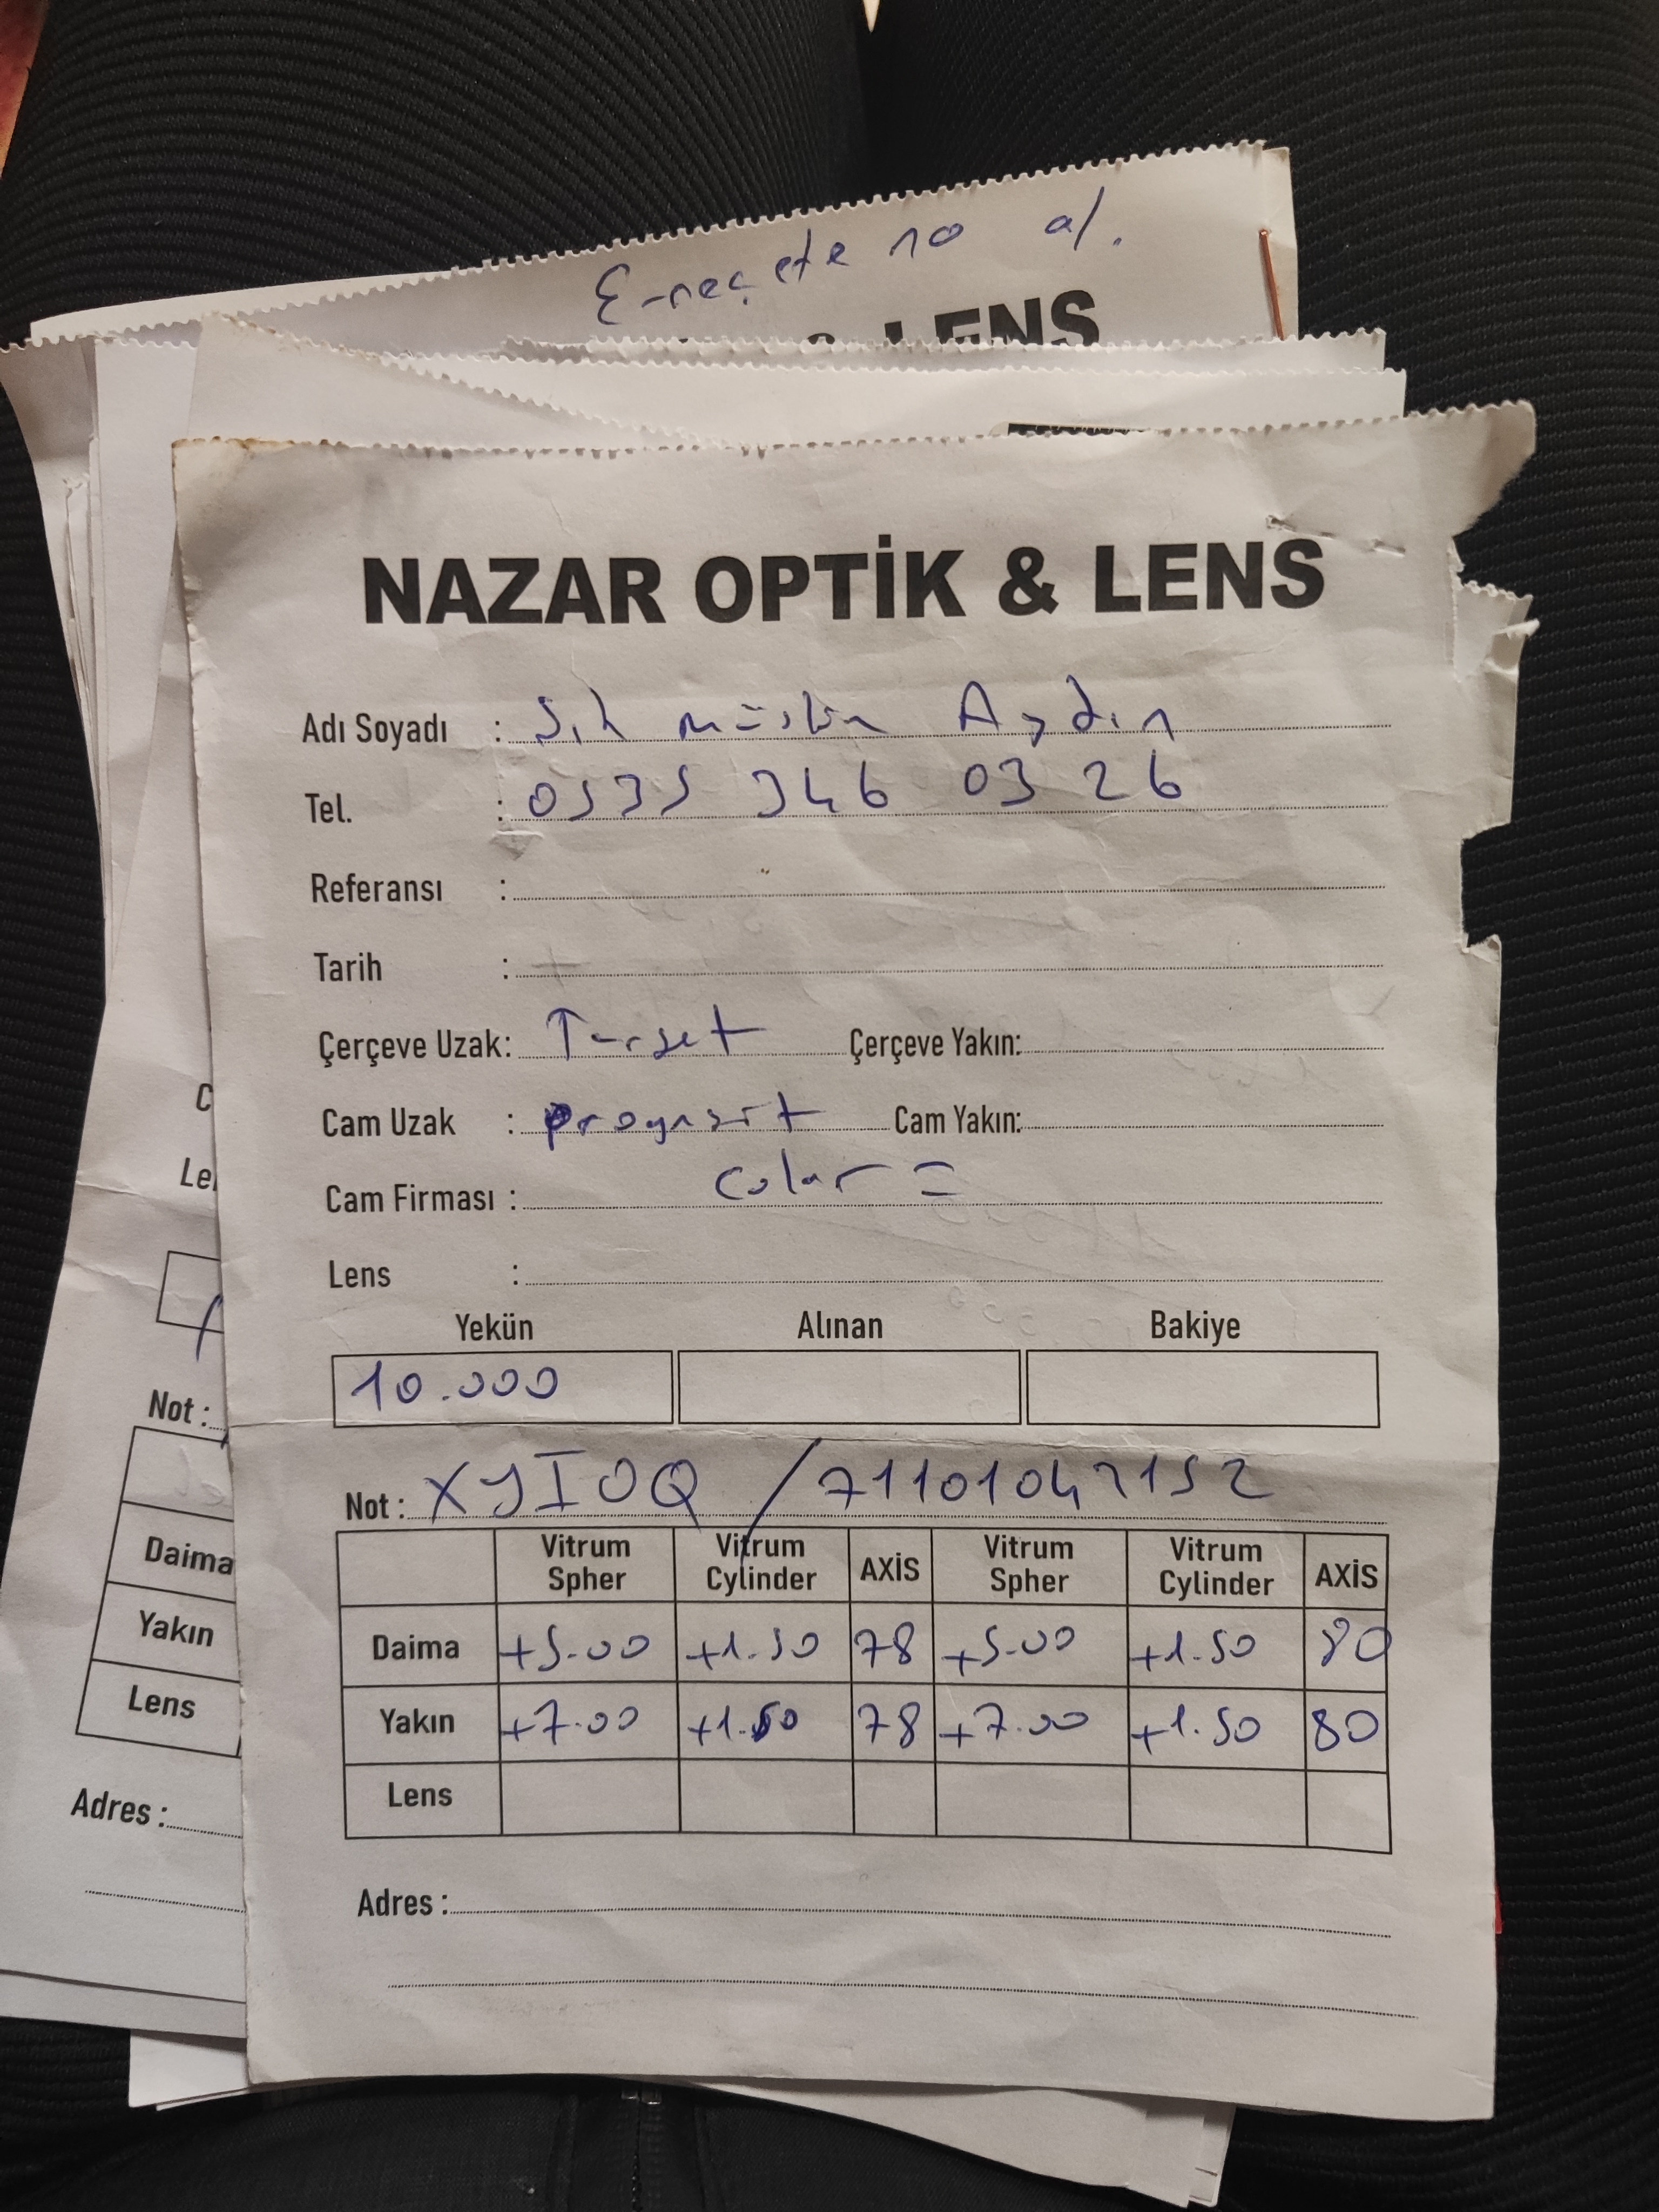 E-reçete no al.
& LENS
NAZAR OPTİK & LENS
Adı Soyadı : Aydın
Tel. : 0535 346 03 26
Referansı :
Tarih :
Çerçeve Uzak: Çerçeve Yakın:
Cam Uzak : Cam Yakın:
Cam Firması : color =
Lens :
Yekün Alınan Bakiye
10.000
Not : XYIOQ / 71101042152
Vitrum Spher Vitrum Cylinder AXİS Vitrum Spher Vitrum Cylinder AXİS
Daima +5.00 +1.50 78 +5.00 +1.50 80
Yakın +7.00 +1.50 78 +7.00 +1.50 80
Lens
Adres :
Not :
Daima
Yakın
Lens
Adres :